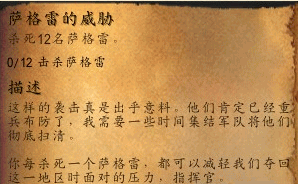 萨格雷的威胁
杀死12名萨格雷。
0/12 击杀萨格雷
描述
这样的袭击真是出乎意料。他们肯定已经重
兵布防了，我需要一些时间集结军队将他们
彻底扫清。
你每杀死一个萨格雷，都可以减轻我们夺回
这一地区时面对的压力，指挥官。